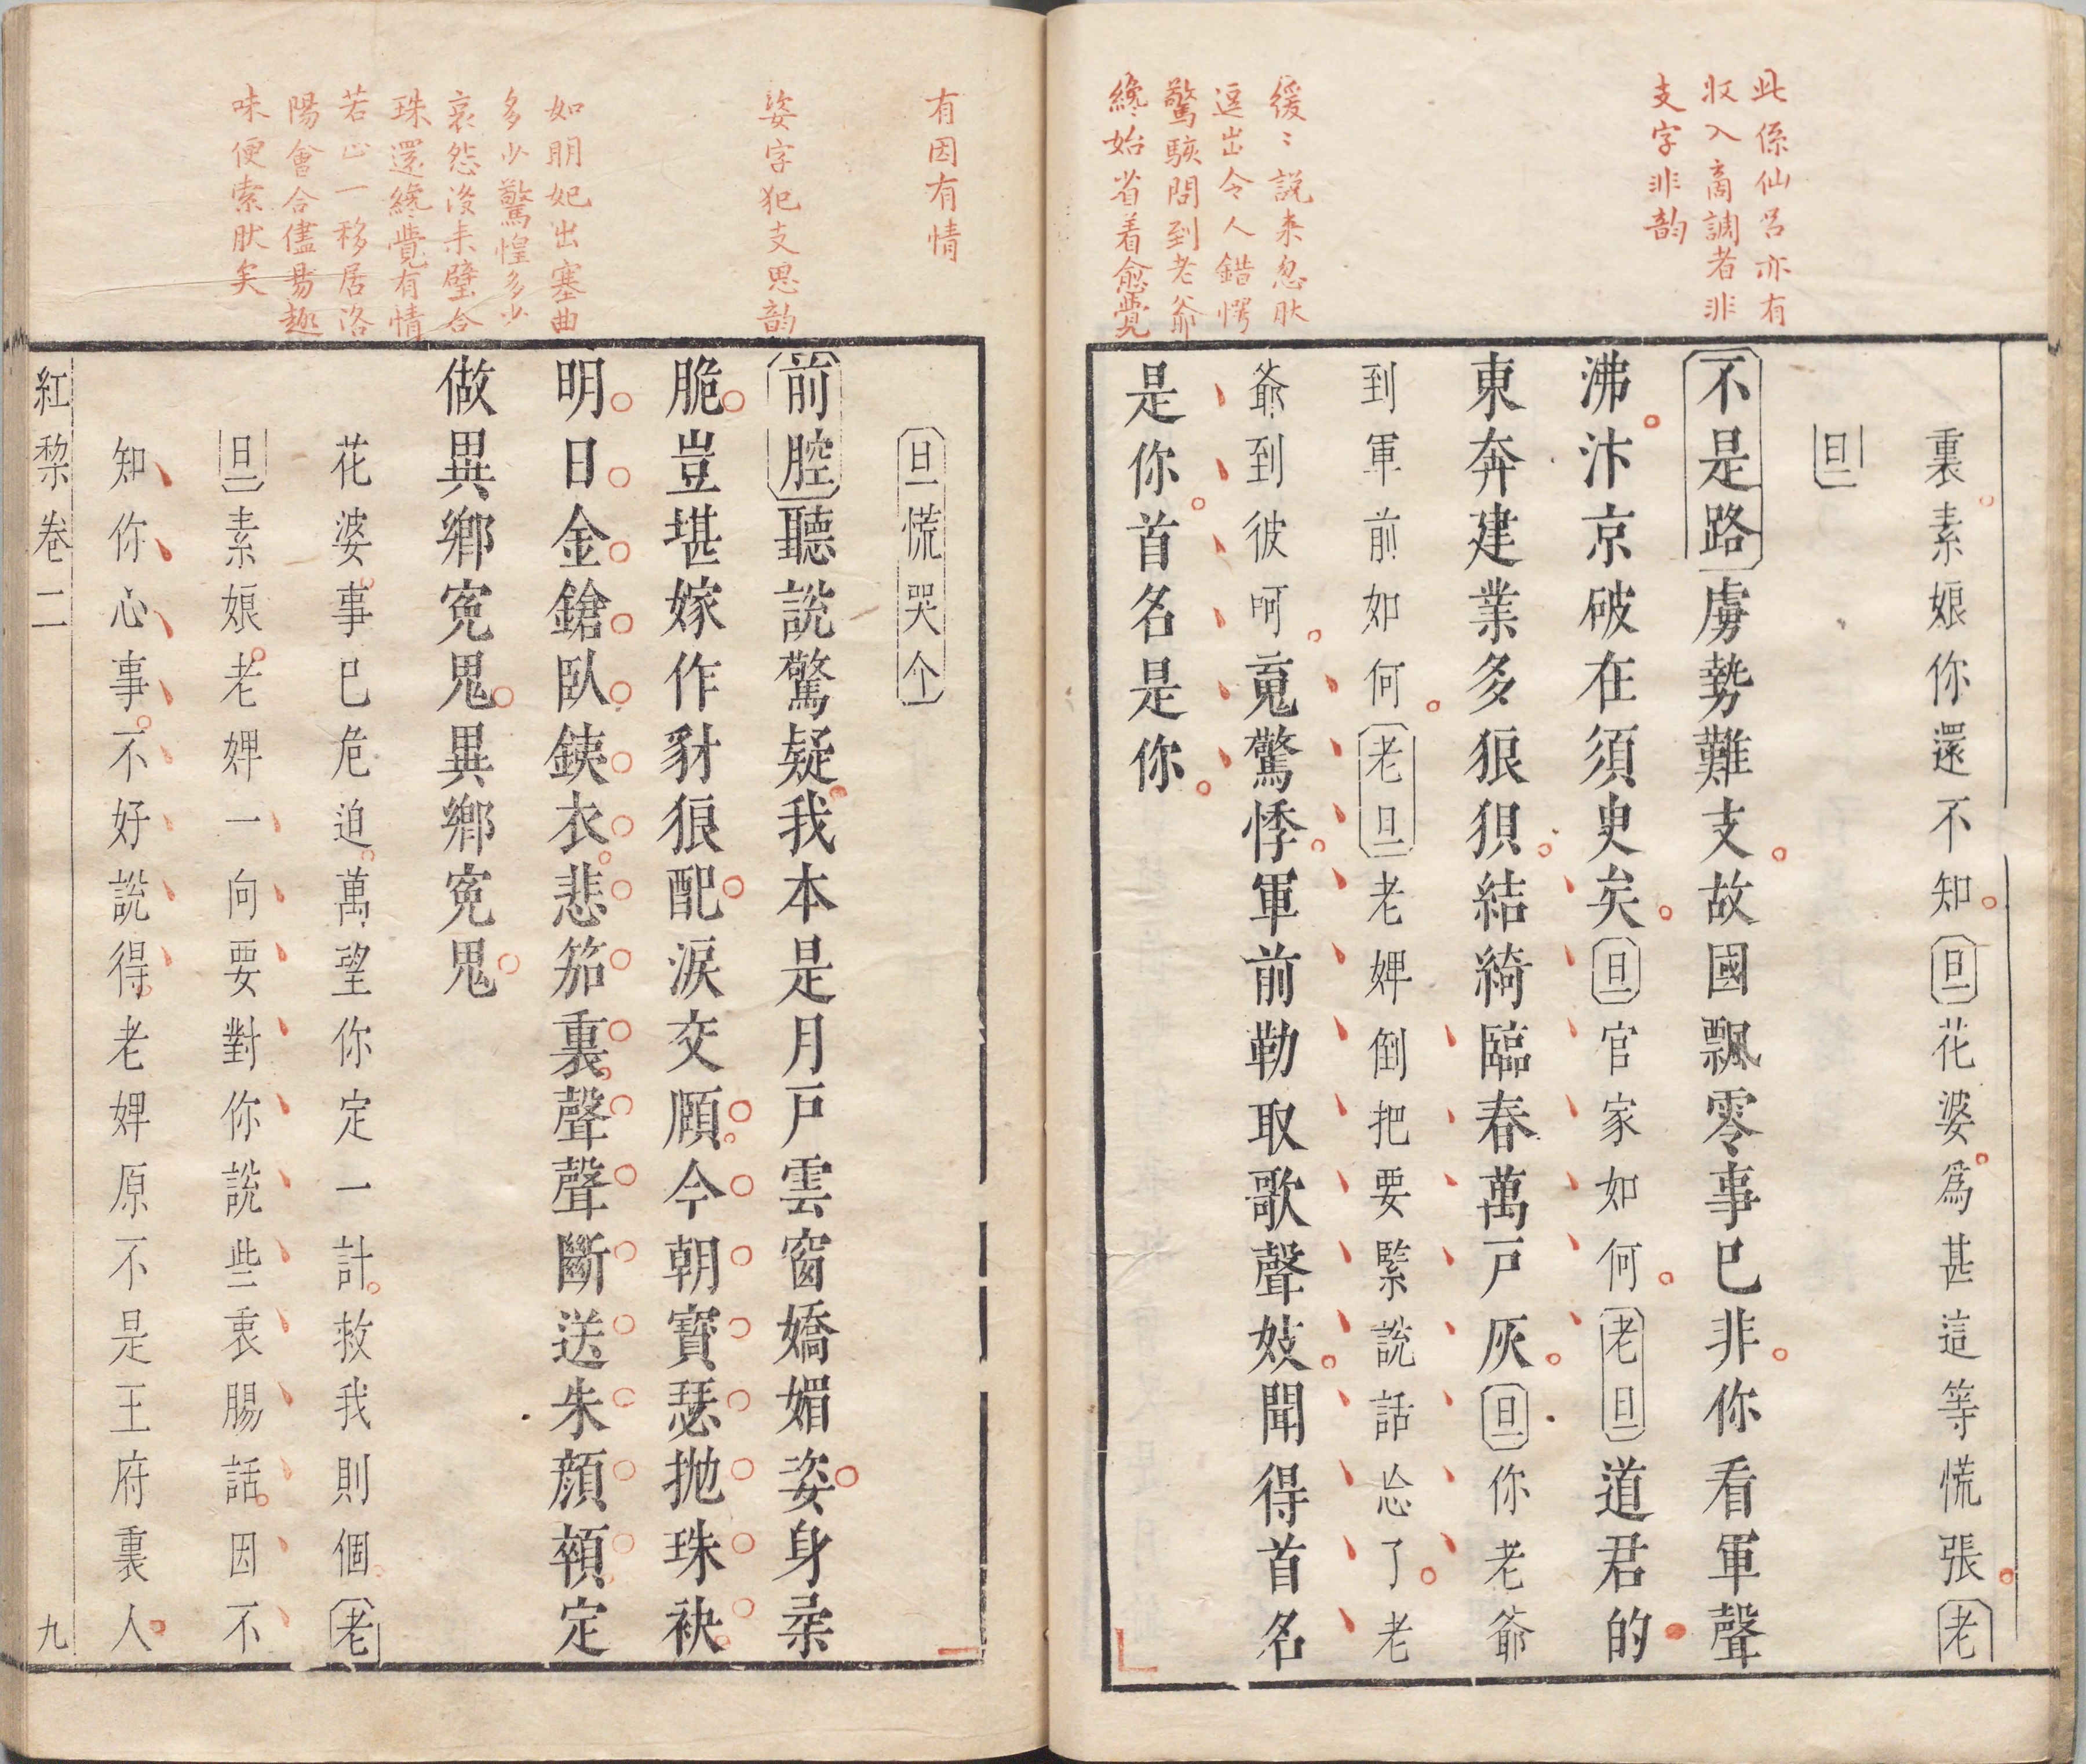 此係仙呂亦有
收入商調者非
支字非韵
緩〻說来忽肰
逗出令人錯愕
驚駭問到老爺
纔始省着愈覺
裏素娘你還不知旦花婆爲甚這等慌張老
旦
不是路虜勢難支故國飄零事巳非你看軍聲
沸汴京破在須臾矣旦官家如何老旦道君的
東奔建業多狼狽結綺臨春萬戸灰旦你老爺
到軍前如何老旦老婢倒把要緊說話忩了老
爺到彼呵竟驚悸軍前勒取歌聲妓聞得首名
是你首名是你
有因有情
姿字犯支思韵
如明妃出塞曲
多少驚惶多少
哀怨後来璧合
珠還纔覺有情
若止一移居洛
陽會合儘易趣
味便索肰矣
旦慌哭介
前腔聽說驚疑我本是月戸雲窗嬌媚姿身柔
脆豈堪嫁作豺狼配淚交頤今朝寳瑟抛珠袂
明日金鎗臥鐵衣悲笳裏聲聲斷送朱顔顇定
做異鄉寃鬼異鄉寃鬼
花婆事巳危迫萬望你定一計救我則個老
旦素娘老婢一向要對你說些衷腸話因不
知你心事不好說得老婢原不是王府裏人
紅梨卷二
九